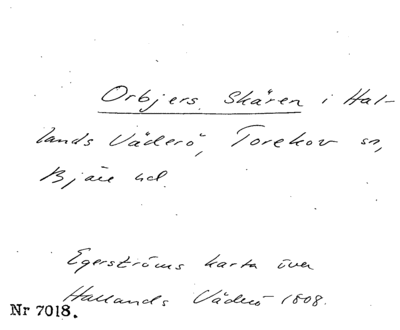 Orbjers Skären i Hal-
lands Väderö, Torekov sn,
Bjäre hd.
Egerströms karta över
Hallands Väderö 1808.
Nr 7018.